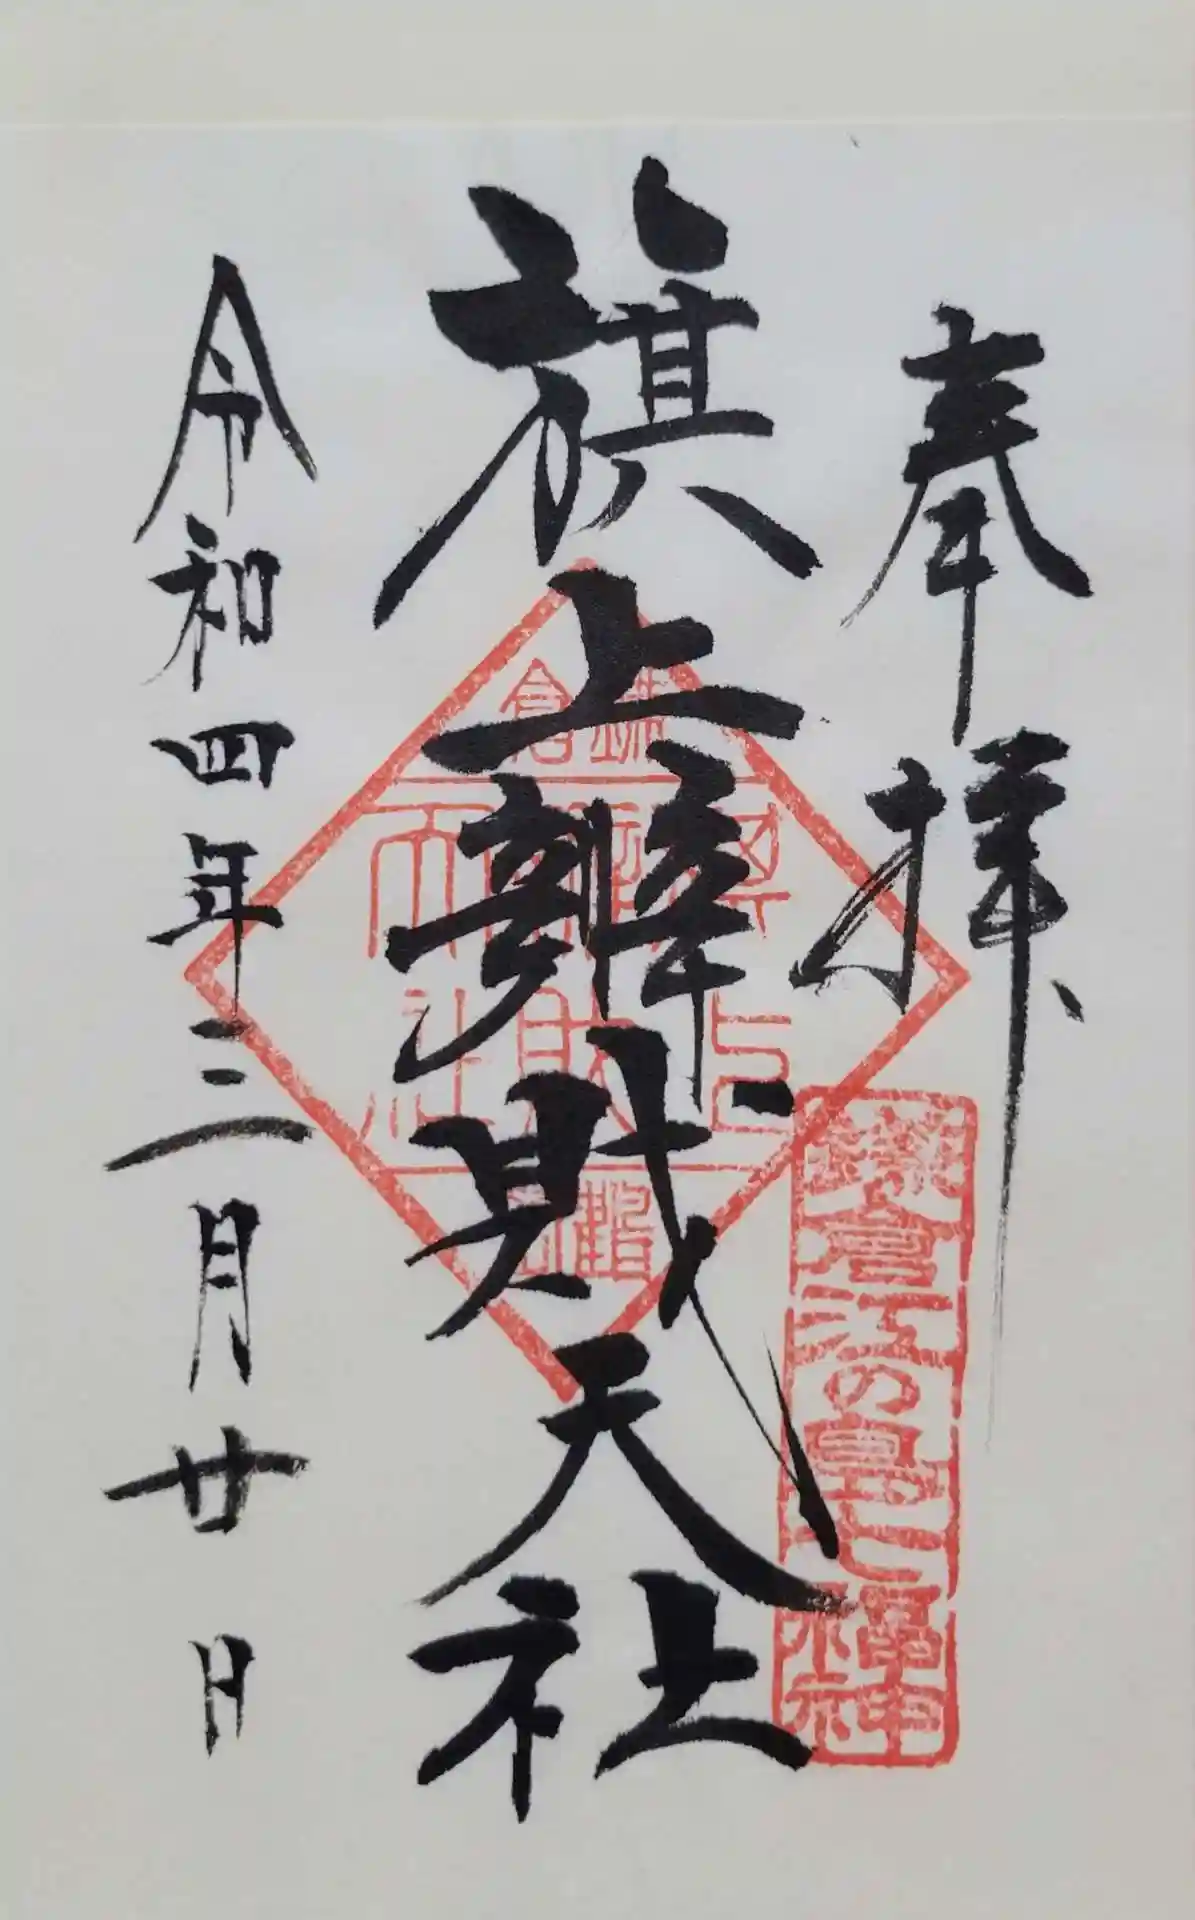 奉拝
旗上辨財天社
令和四年三月廿日
鎌倉
社
鶴
鎌倉江の島七福神